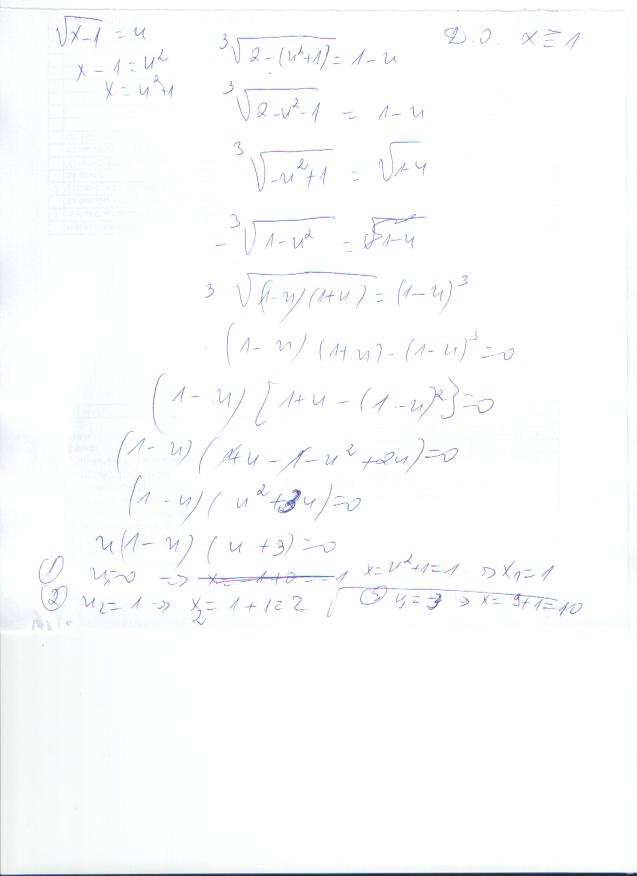 √(x-1) = u
x - 1 = u²
x = u² + 1
Д.О. x ≥ 1
³√(2-(u²+1)) = 1-u
³√(2-u²-1) = 1-u
³√(-u²+1) = √(1-u)
-³√(1-u²) = 1-u
³√((1-u)(1+u)) = (1-u)³
(1-u)(1+u) - (1-u)³ = 0
(1-u)[1+u-(1-u)²] = 0
(1-u)(1+u-1-u²+2u) = 0
(1-u)(u²+3u) = 0
u(1-u)(u+3) = 0
① u₁=0 => x=u²+1=1 => x₁=1
② u₂=1 => x₂=1+1=2 ③ u₃=-3 => x=9+1=10